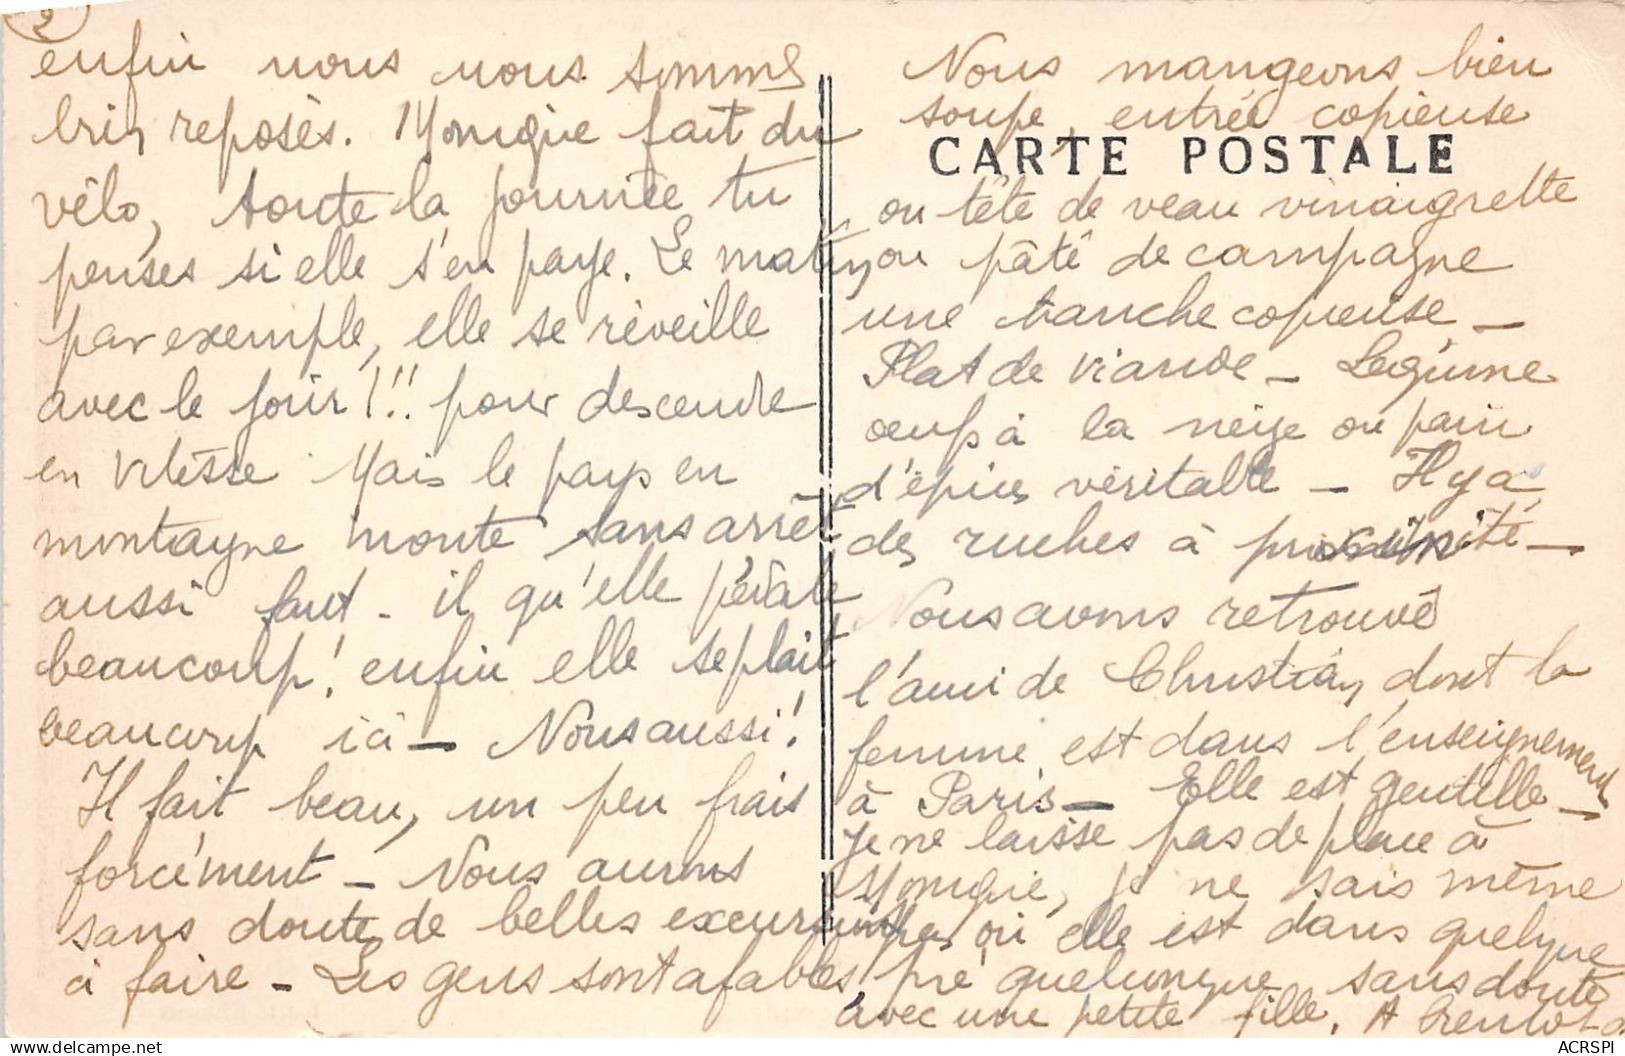 2
enfin nous nous sommes
bien reposés. Monique fait du
vélo, toute la journée tu
penses si elle s'en paye. Le matin
par exemple, elle se réveille
avec le jour!!! pour descendre
en vitesse. Mais le pays en
montagne monte sans arrêt
aussi faut-il qu'elle pédale
beaucoup! enfin elle se plait
beaucoup ici — Nous aussi!
Il fait beau, un peu frais
forcément — Nous aurons
sans doute de belles excursions
à faire — Les gens sont afables
Nous mangeons bien
soupe, entrée copieuse
CARTE POSTALE
ou tête de veau vinaigrette
ou pâté de campagne
une tranche copieuse —
Plat de viande — Légume
oeufs à la neige ou pain
d'épices véritable — Il y a
des ruches à proximité —
Nous avons retrouvé
l'ami de Christian, dont la
femme est dans l'enseignement
à Paris — Elle est gentille —
Je ne laisse pas de place à
Monique, je ne sais même
pas où elle est dans quelque
pré quelconque sans doute
avec une petite fille. A bientôt
ACRSPI